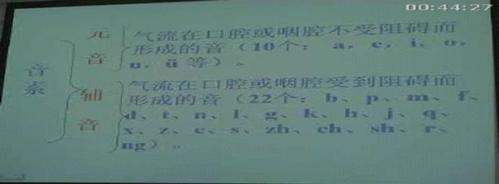 00:44:27
音素
元音
气流在口腔或咽腔不受阻碍而
形成的音（10个：a、e、i、o、
u、ü 等）。
辅音
气流在口腔或咽腔受到阻碍而
形成的音（22个：b、p、m、f、
d、t、n、l、g、k、h、j、q、
x、z、c、s、zh、ch、sh、r、
ng）。